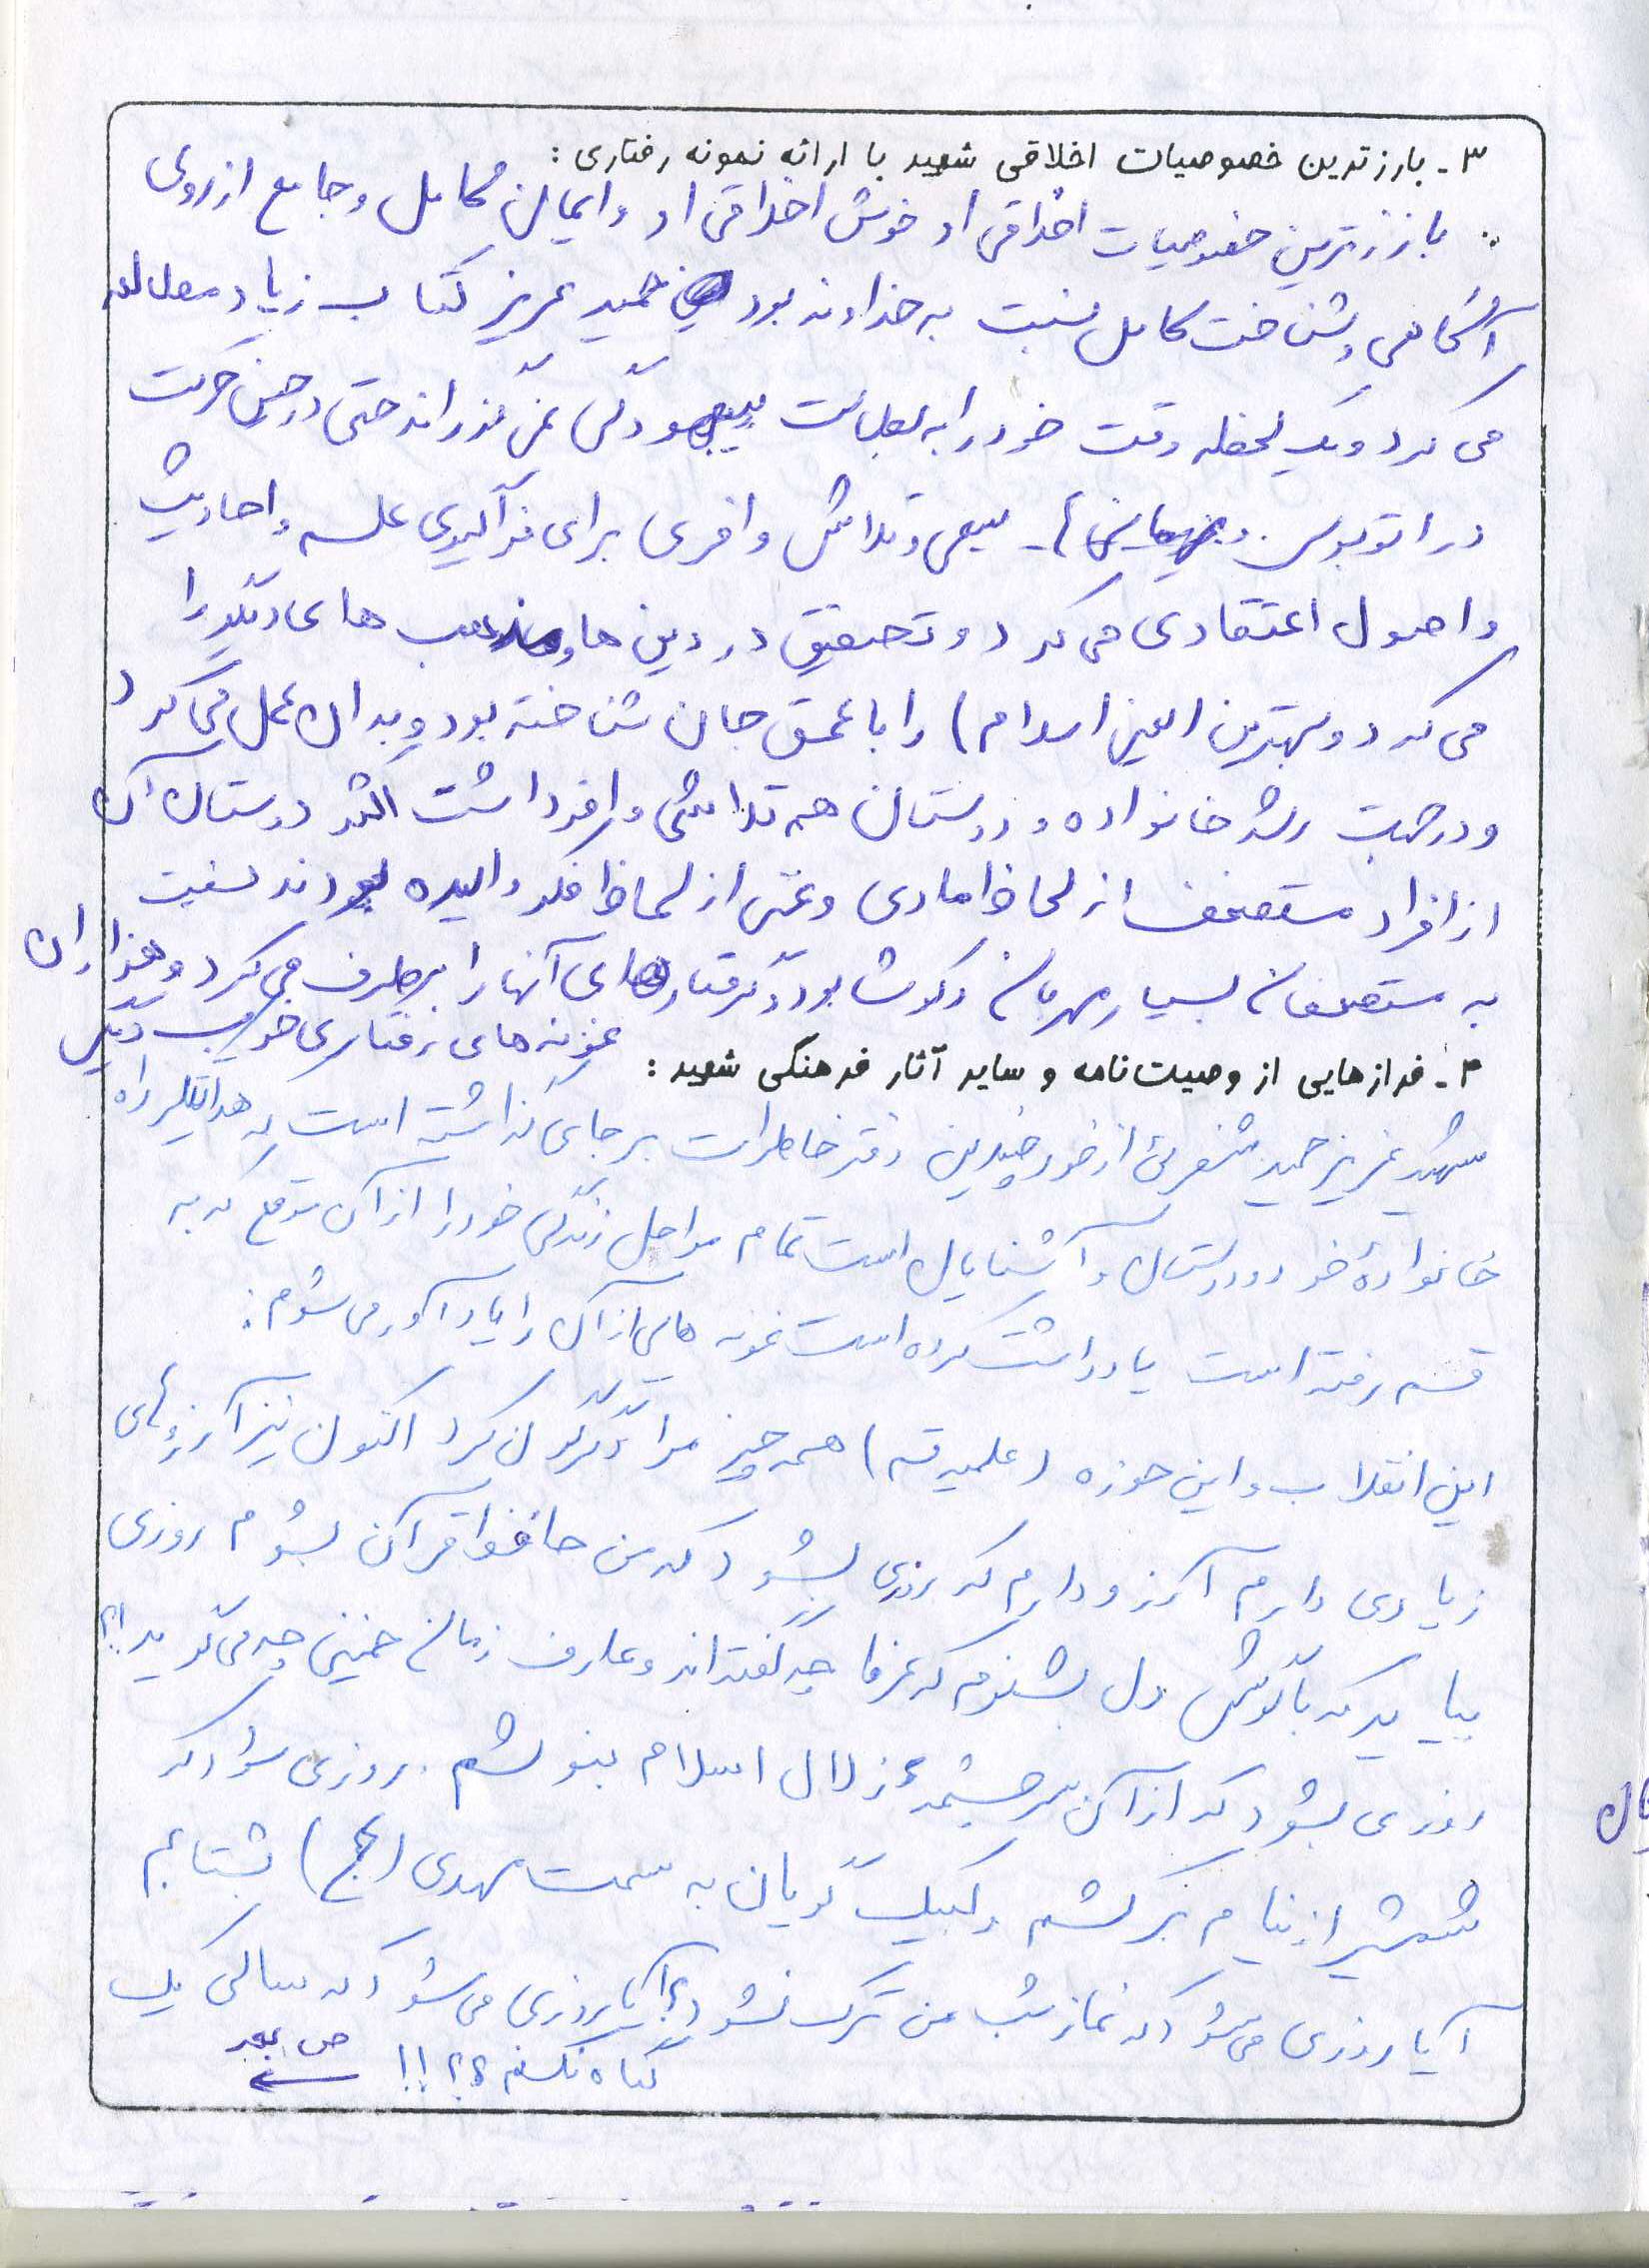 ۳ـ بارزترین خصوصیات اخلاقی شهید با ارائه نمونه رفتاری:
بارزترین خصوصیات اخلاقی او خوش اخلاقی او و ایمان کامل و جامع از روی
آگاهی و شناخت کامل نسبت به خداوند بود حمید عزیز کتاب زیاد مطالعه
می کرد و یک لحظه وقت خود را به بطالت بیهودگی نمی گذراند حتی در حین حرکت
در اتوبوس و سعی و تلاش وافری برای فراگیری علم و احادیث
و اصول اعتقادی می کرد و تحقیق در دین ها و مذهب های دیگر را
می کرد و بهترین (دین اسلام) را با عمق جان شناخته بود و بدان عمل می کرد
و در جهت رشد خانواده و دوستان هم تلاشی وافر داشت اکثر دوستان آن
از افراد مستضعف از لحاظ مادی و غنی از لحاظ فکر و ایده بودند نسبت
به مستضعفان بسیار مهربان و کوشا بود و گرفتاریهای آنها را برطرف می کرد و هزاران
نمونه های رفتاری خوب دیگر
۴ـ فرازهایی از وصیت‌نامه و سایر آثار فرهنگی شهید:
شهید عزیز حمید از خود چندین دفتر خاطرات بر جای گذاشته است که هدایتگر راه
خانواده خود و دوستان و آشنایان است تمام مراحل زندگی خود را از آن موقع که به
قم رفته است یادداشت کرده است نمونه هایی از آن را یادآور می شوم:
این انقلاب و این حوزه (علمیه قم) همه چیز مرا دگرگون کرد اکنون نیز آرزوهای
زیادی دارم آرزو دارم که روزی بشود که من حافظ قرآن بشوم روزی
بیاید که با گوش دل بشنوم که عرفا چه گفته اند و عارف زمان خمینی چه می گوید!؟
روزی بشود که از آن سرچشمه زلال اسلام بنوشم. روزی شود که
شمشیر از نیام برکشم و لبیک گویان به سمت مهدی (عج) بشتابم
آیا روزی می شود که نماز شب من ترک نشود؟ آیا روزی می شود که سالی یک
گناه نکنم؟؟!!
ص بعد